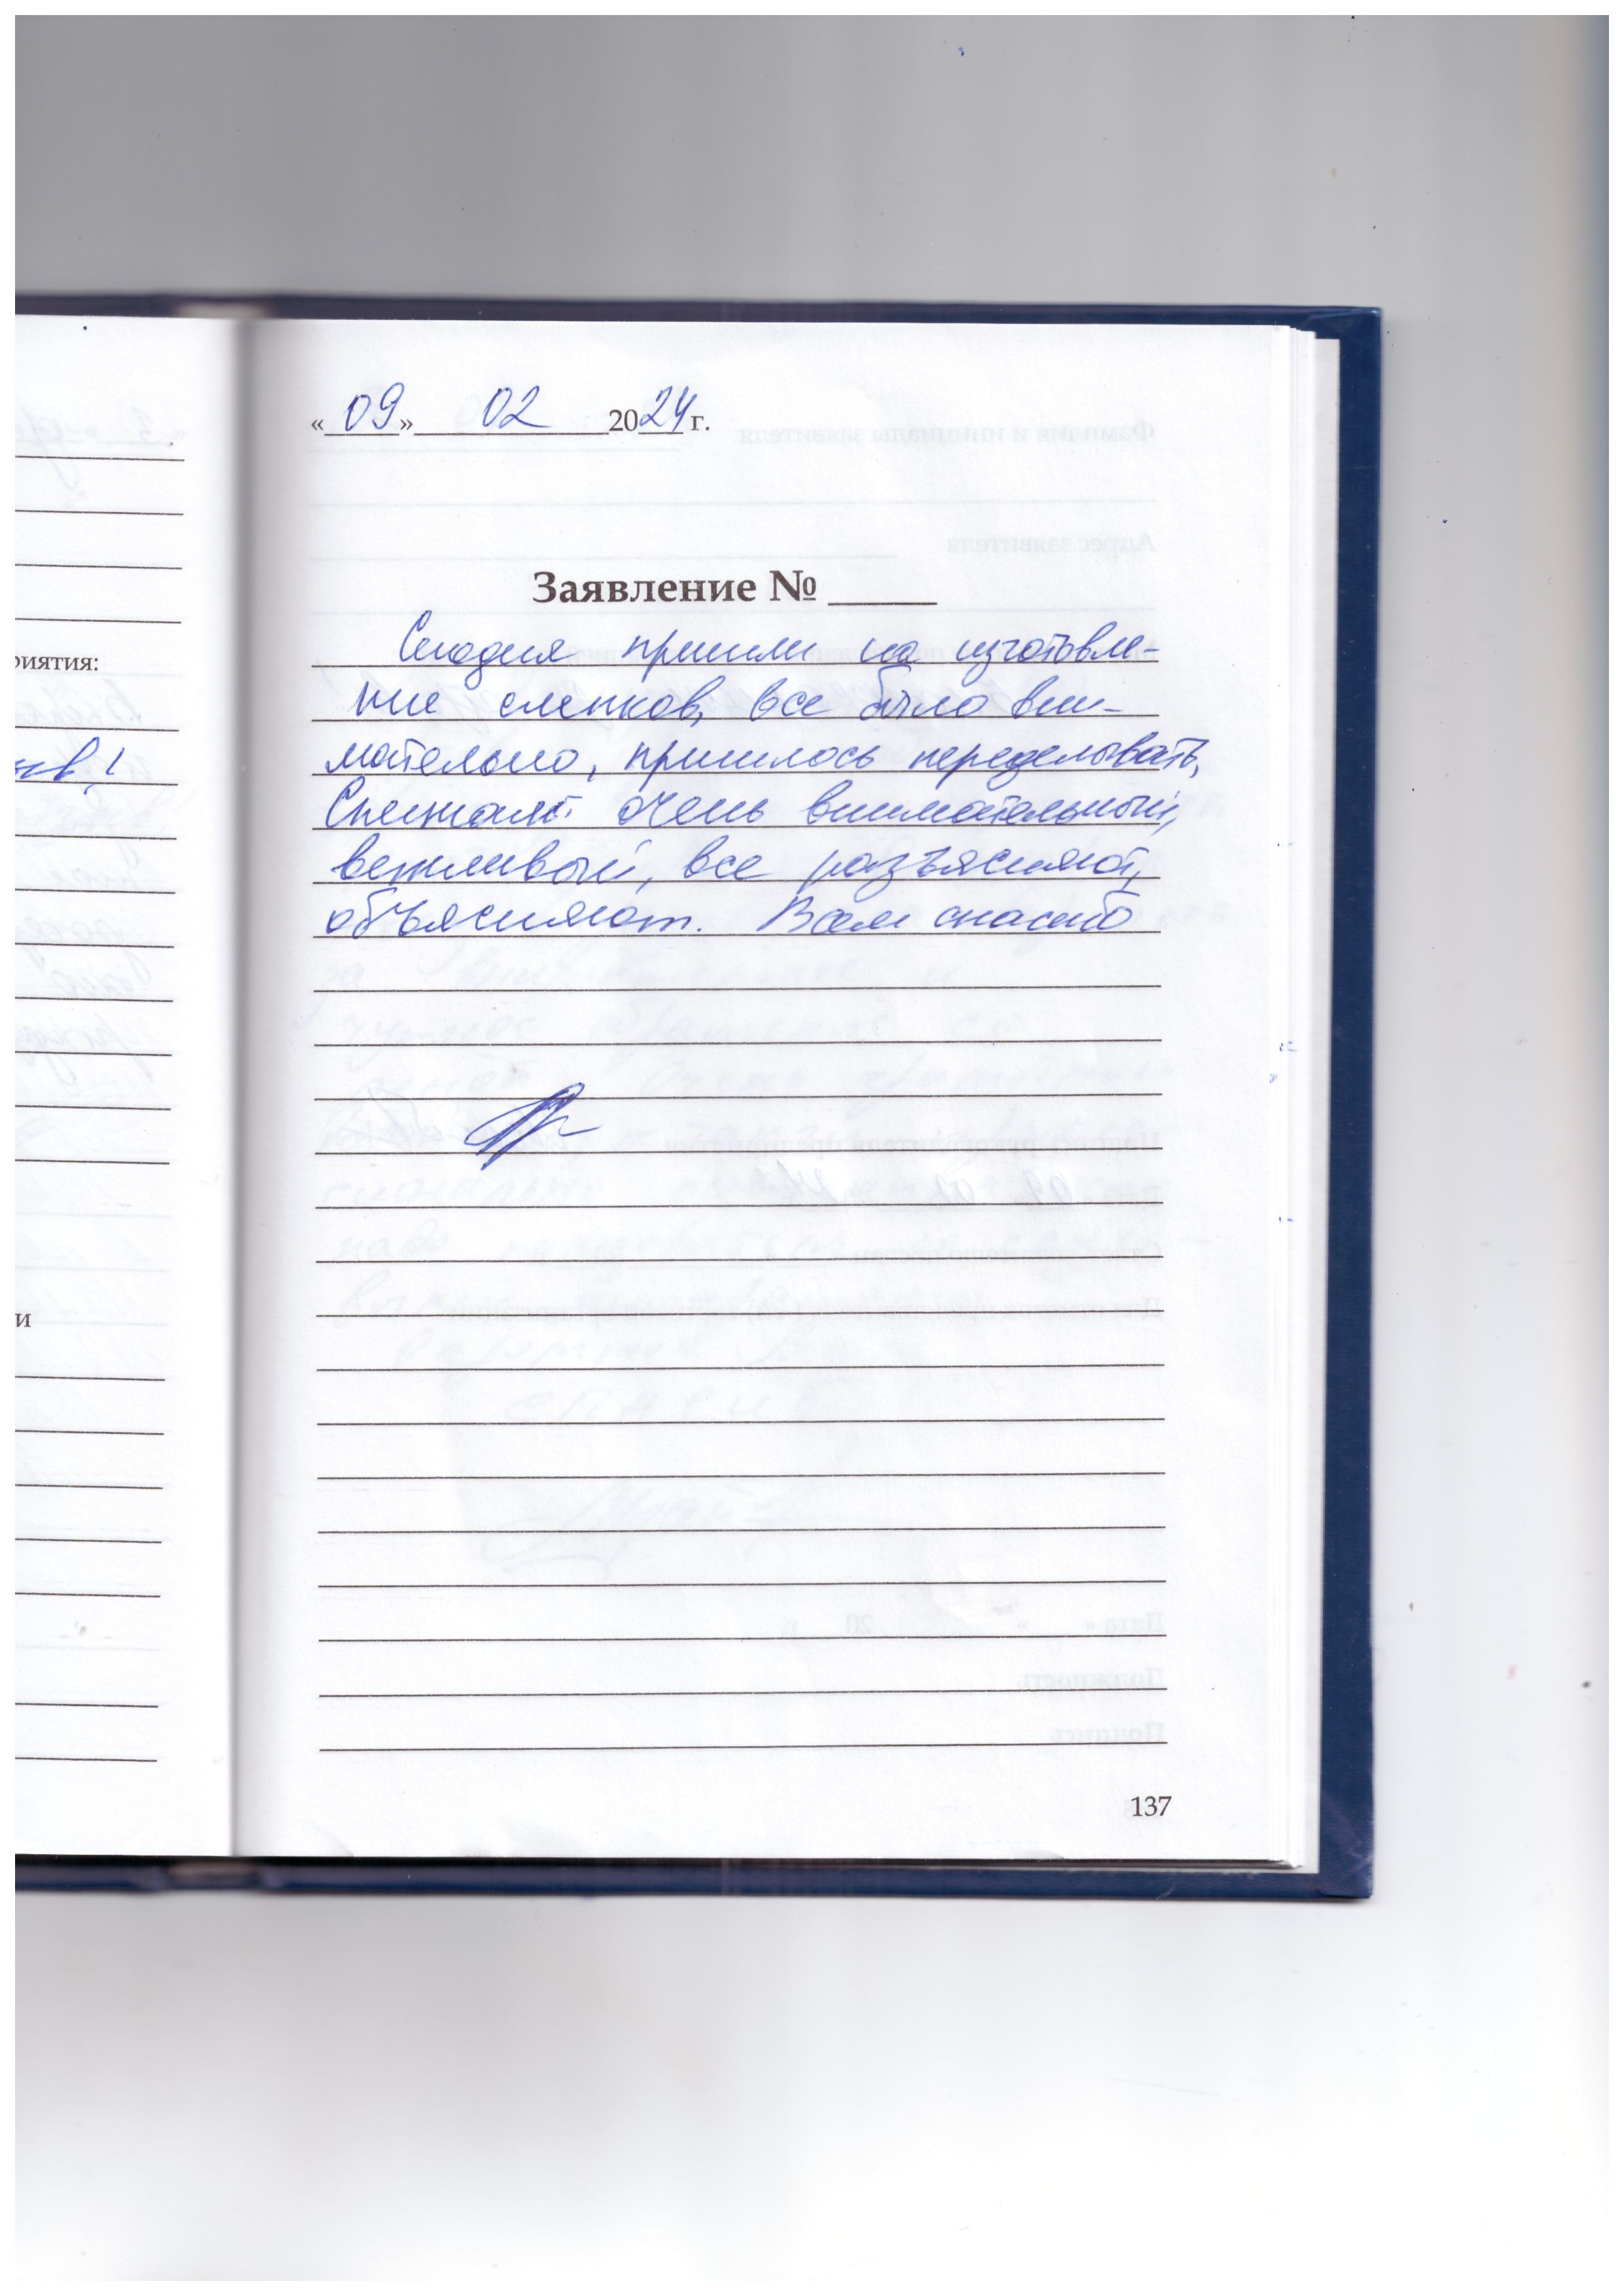 «09» 02 2024 г.
Заявление № ____
Сегодня пришли на изготовле-
ние слепков, все было вни-
мательно, пришлось переделывать,
Специалист очень внимательный,
вежливый, все разъясняют,
объясняют. Вам спасибо
риятия:
и
137